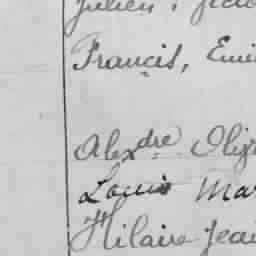 Julien,
Francis, Emi
Alexdre Oli
Louis Mar
Hilaire Jea